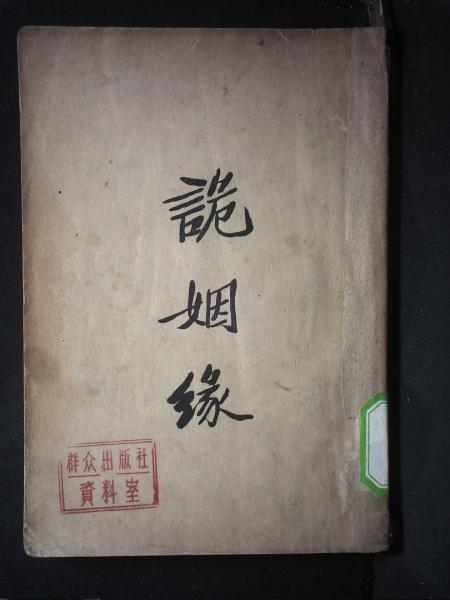 詭
姻
緣
群众出版社
資料室